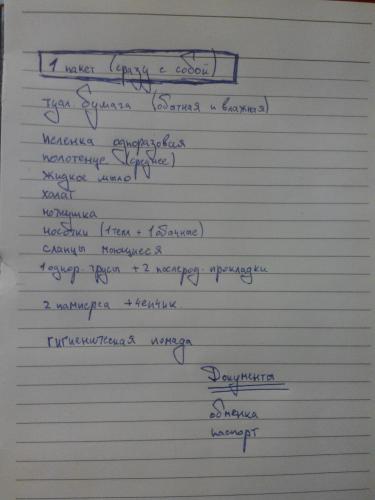 1 пакет (сразу с собой)
туал. бумага (обычная и влажная)
пеленка одноразовая
полотенце (среднее)
жидкое мыло
халат
ночнушка
носочки (1 тепл + 1 обычные)
сланцы моющиеся
1 однор. трусы + 2 послерод. прокладки
2 памперса + чепчик
гигиеническая помада
Документы
обменка
паспорт